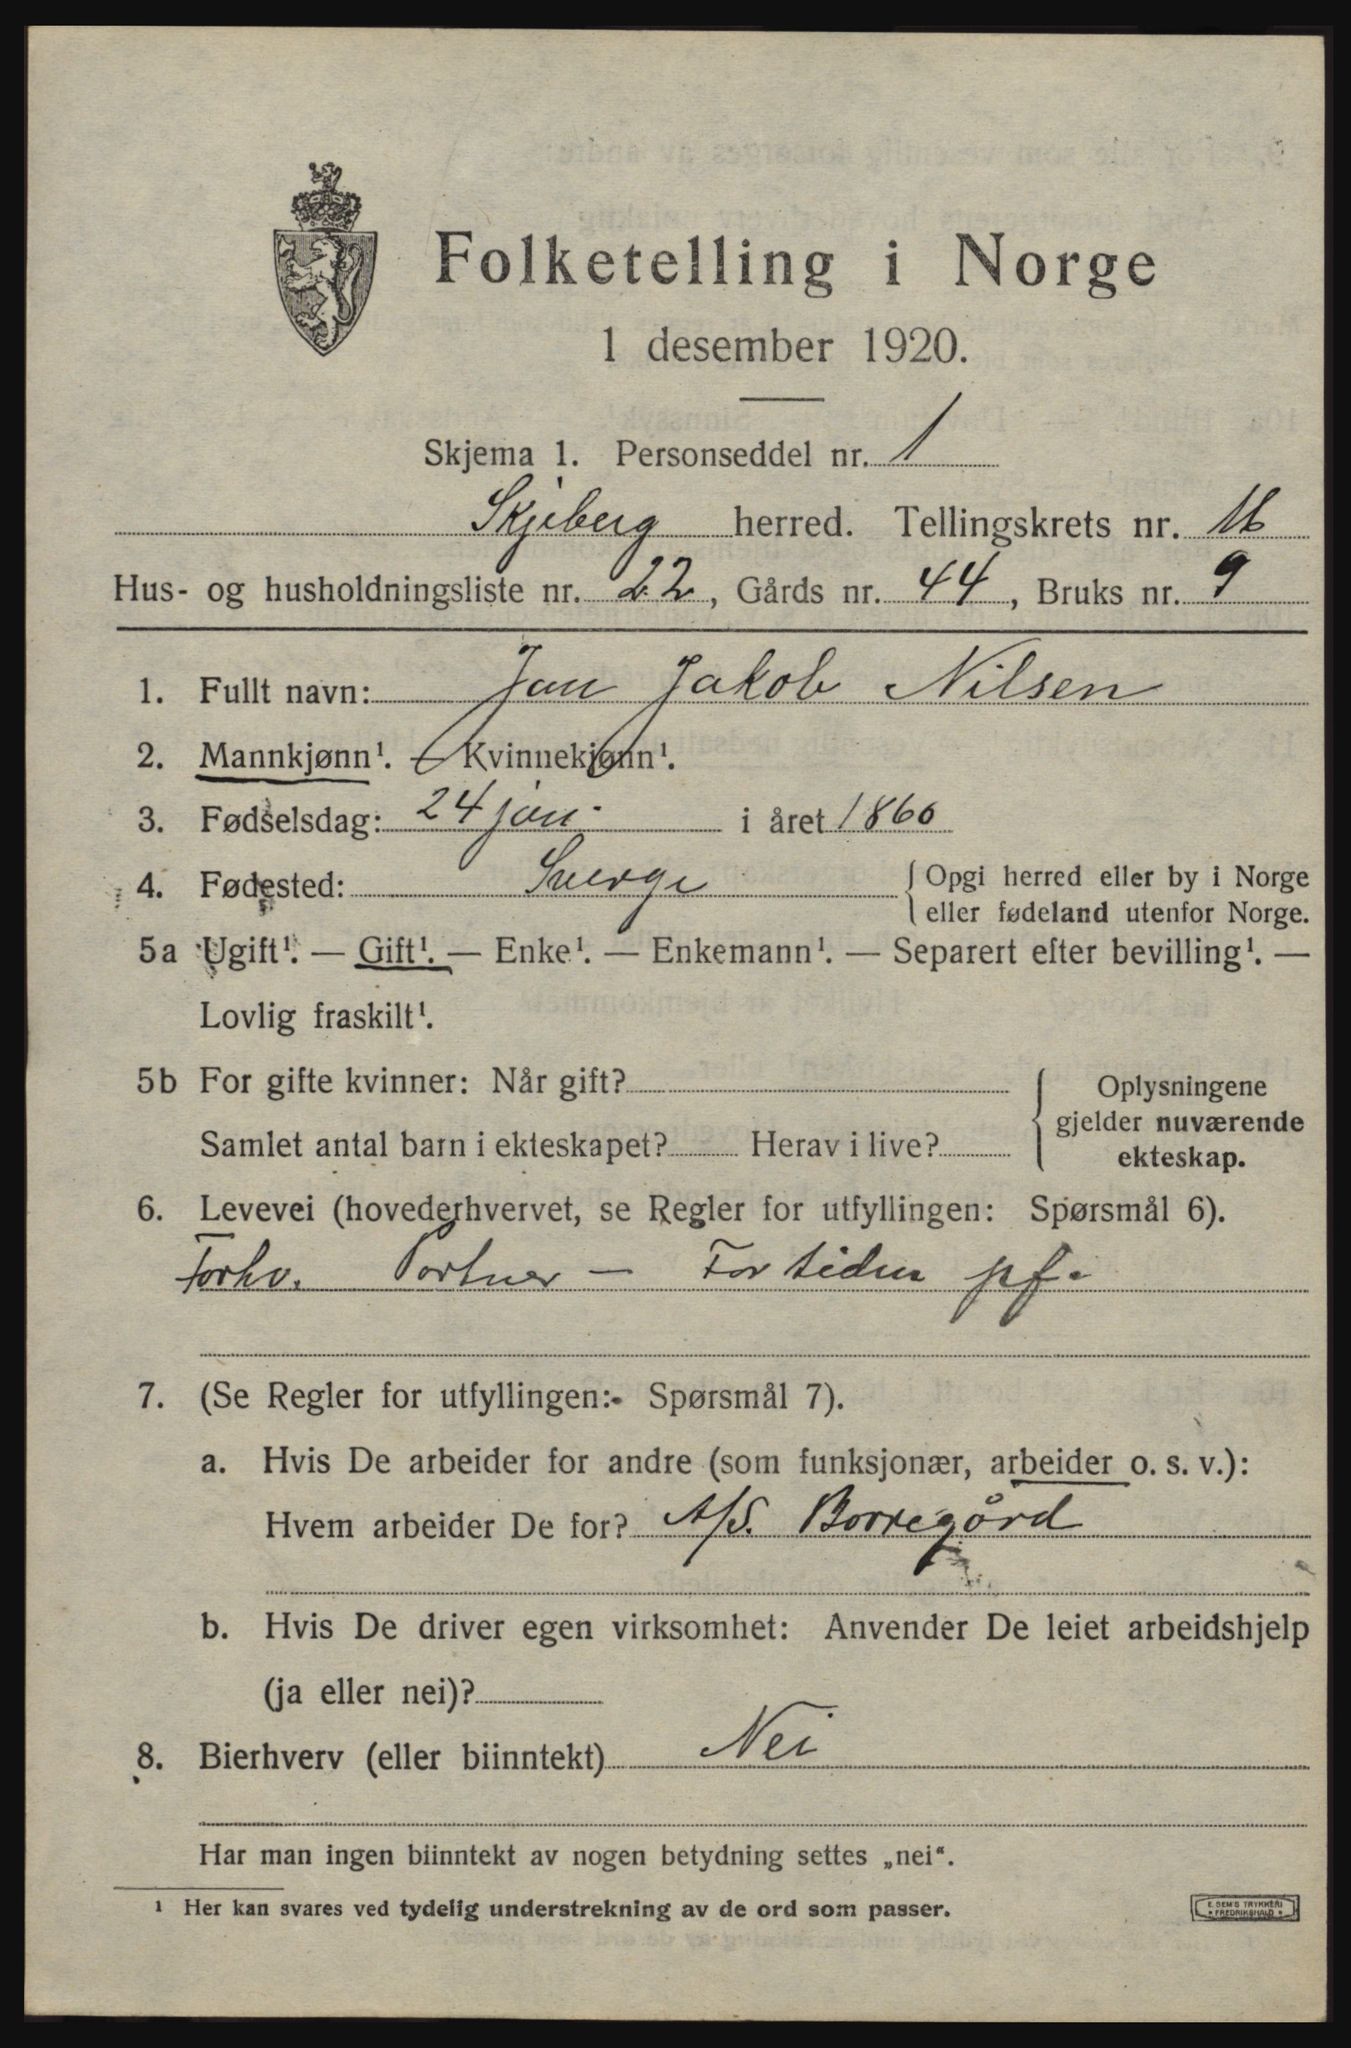 Folketelling i Norge
1 desember 1920.
Skjema 1. Personseddel nr. 1
Skjeberg herred. Tellingskrets nr. 16
Hus- og husholdningsliste nr. 22, Gårds nr. 44, Bruks nr. 9
1. Fullt navn: Jan Jakob Nilsen
2. Mannkjønn¹. — Kvinnekjønn¹.
3. Fødselsdag: 24 jan. i året 1860
4. Fødested: Sverge { Opgi herred eller by i Norge
eller fødeland utenfor Norge.
5a Ugift¹. — Gift¹. — Enke¹. — Enkemann¹. — Separert efter bevilling¹. —
Lovlig fraskilt¹.
5b For gifte kvinner: Når gift? { Oplysningene
gjelder nuværende
Samlet antal barn i ekteskapet? Herav i live? ekteskap.
6. Levevei (hovederhvervet, se Regler for utfyllingen: Spørsmål 6).
Forhv. Portner — For tiden pf.
7. (Se Regler for utfyllingen: Spørsmål 7).
a. Hvis De arbeider for andre (som funksjonær, arbeider o. s. v.):
Hvem arbeider De for? A/S. Borregård
b. Hvis De driver egen virksomhet: Anvender De leiet arbeidshjelp
(ja eller nei)?
8. Bierhverv (eller biinntekt) Nei
Har man ingen biinntekt av nogen betydning settes „nei“.
¹ Her kan svares ved tydelig understrekning av de ord som passer.
E. SEM'S TRYKKERI
FREDRIKSHALD